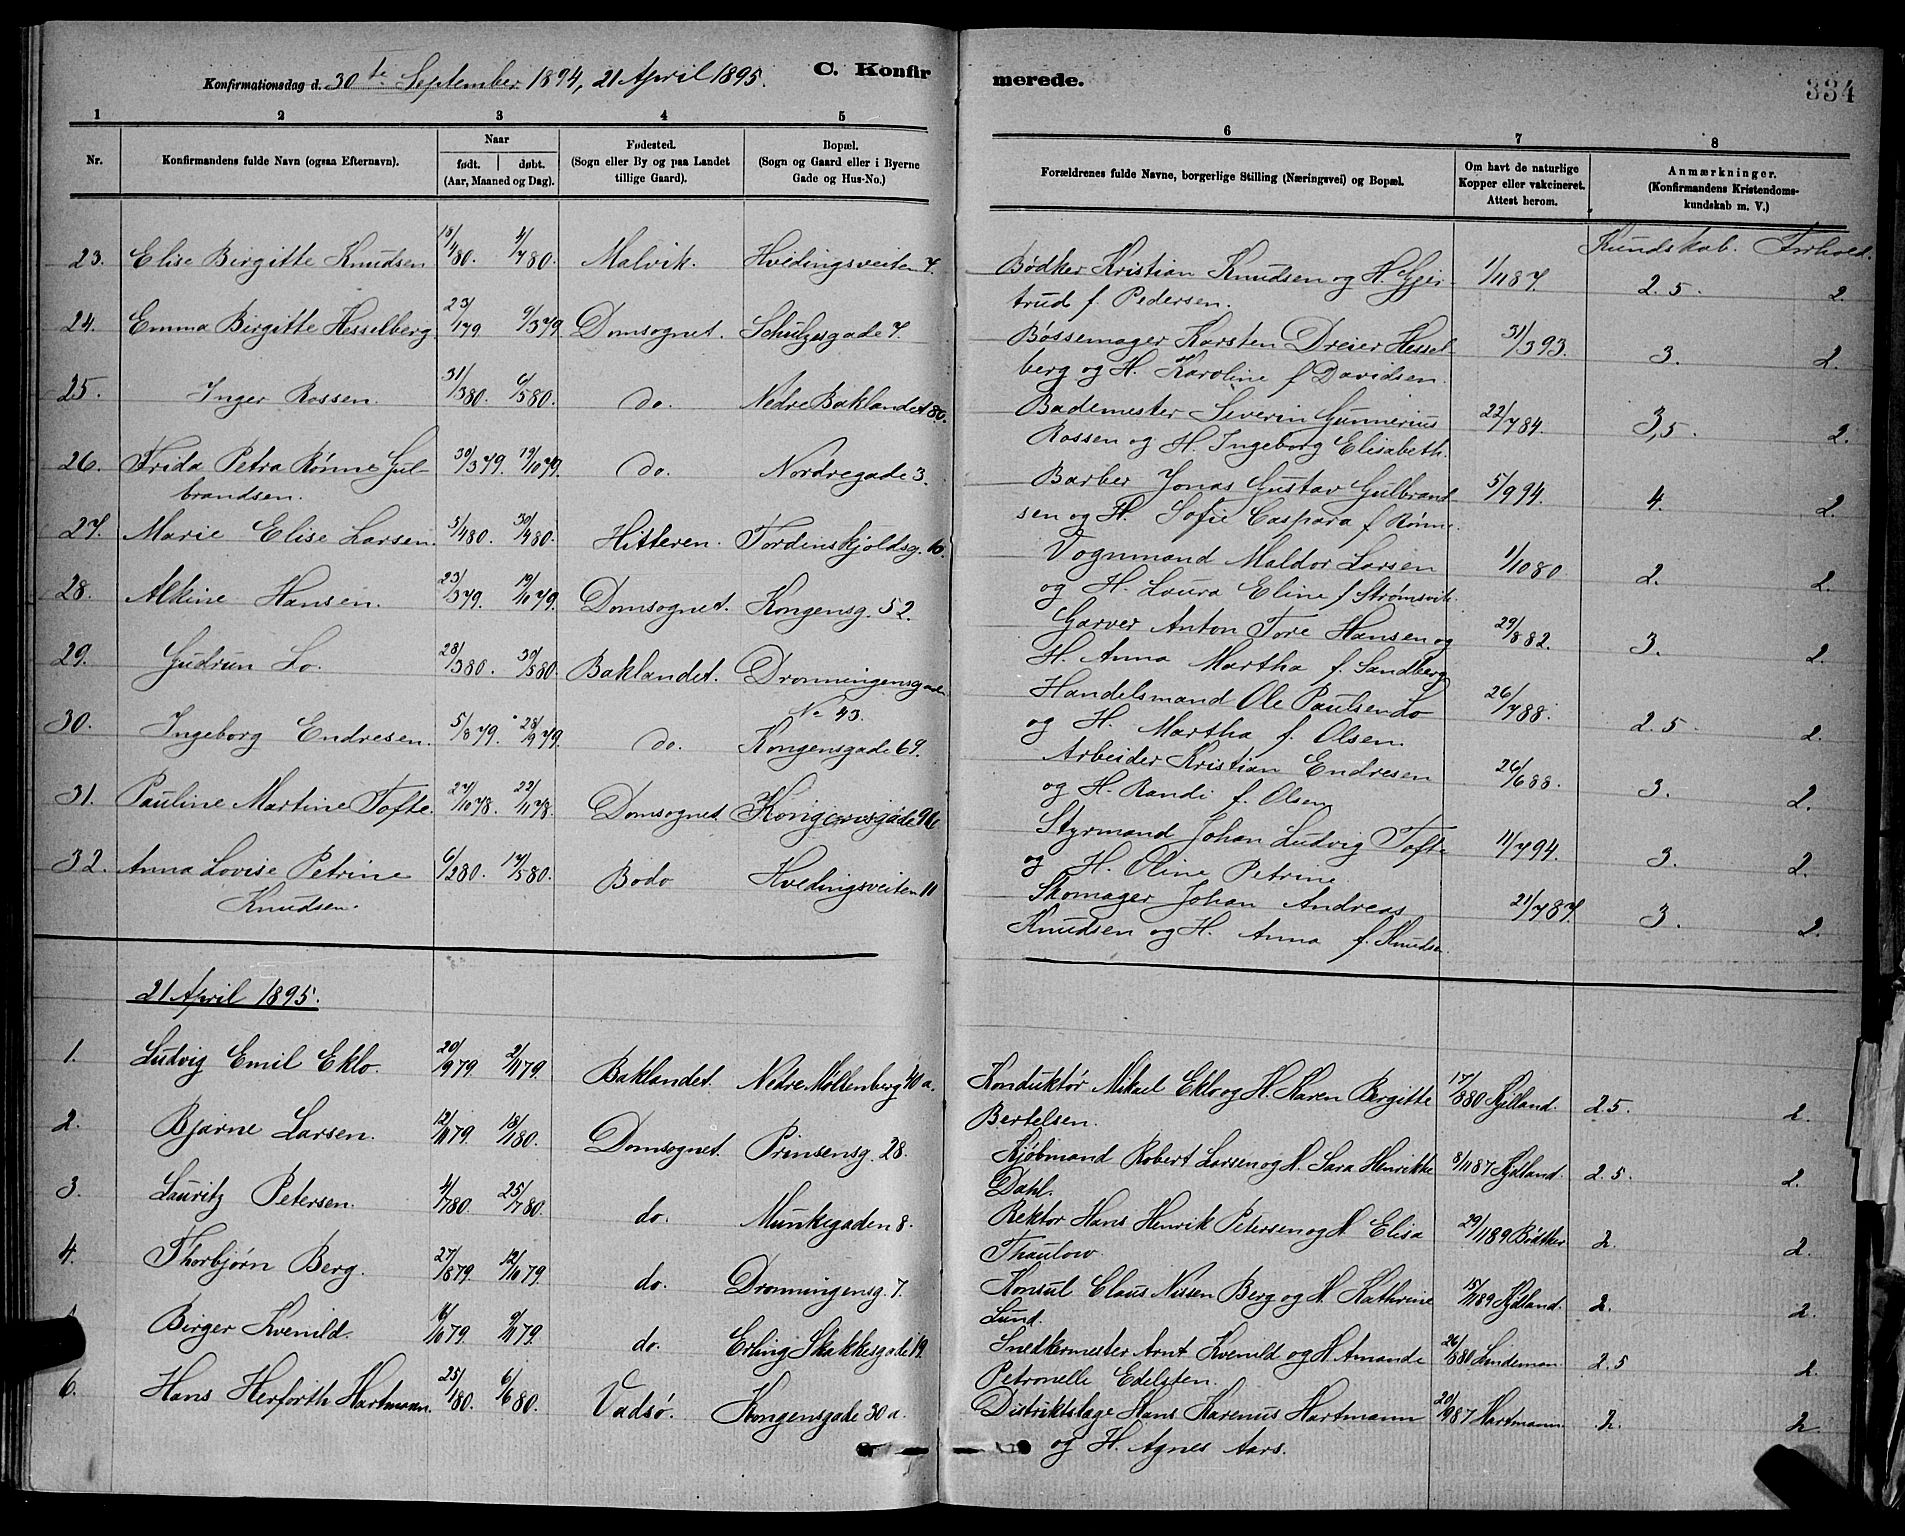 Konfirmationsdag d. 30te September 1894, 21 April 1895. C. Konfirmerede. 334
1 2 3 4 5 6 7 8
Nr. Konfirmandens fulde Navn (ogsaa Efternavn). Naar født. døbt. (Aar, Maaned og Dag). Fødested. (Sogn eller By og paa Landet tillige Gaard). Bopæl. (Sogn og Gaard eller i Byerne Gade og Hus-No.) Forældrenes fulde Navne, borgerlige Stilling (Næringsvei) og Bopæl. Om havt de naturlige Kopper eller vakcineret. Attest herom. Anmærkninger. (Konfirmandens Kristendomskundskab m. V.)
Kundskab. Forhold.
23. Elise Birgitte Knudsen 18/4 80. 4/7 80. Malvik. Hvedingsveiten 7. Bødker Kristian Knudsen og H. Gjertrud f. Pedersen. 1/11 87. 2.5. 2.
24. Emma Birgitte Hesselberg 23/1 79 9/3 79. Domsognet. Schulzesgade 7. Bøssemager Karsten Dreier Hesselberg og H. Karoline f Davidsen. 31/3 93. 3. 2.
25. Inger Rossen. 31/3 80. 6/5 80. do. Nedre Baklandet 80. Bademester Severin Gunnerius Rossen og H. Ingeborg Elisabeth. 22/7 84. 3,5. 2.
26. Frida Petra Rønne Gulbrandsen. 30/3 79. 19/10 79. do. Nordregade 3. Barber Jonas Gustav Gulbrandsen og H. Sofie Caspara f Rønne. 5/9 94. 4. 2.
27. Marie Elise Larsen. 5/4 80. 30/4 80. Hitteren. Tordenskjoldsg. 10. Vognmand Maldor Larsen og H. Laura Eline f Strømsvik. 1/10 80 2. 2.
28. Alkine Hansen. 23/3 79. 19/10 79. Domsognet. Kongensg. 52. Garver Anton Tore Hansen og H. Anna Martha f. Sandberg 29/8 82. 3. 2.
29. Gudrun Lo. 28/3 80. 30/5 80. Baklandet. Dronningensgaden No 43. Handelsmand Ole Paulsen Lo og H. Martha f. Olsen. 26/7 88. 2.5. 2.
30. Ingeborg Endresen. 5/8 79. 28/9 79. do. Kongensgade 69. Arbeider Kristian Endresen og H. Randi f. Olsen 26/6 88. 3. 2.
31. Pauline Martine Tofte. 27/10 78. 22/11 78. Domsognet. Kongensgade 96 Styrmand Johan Ludvig Tofte og H. Oline Petrine. 11/7 94. 3. 2.
32. Anna Lovise Petrine Knudsen. 6/2 80. 17/5 80. Bodo Hvedingsveiten 11 Skomager Johan Andreas Knudsen og H. Anna f. Knudsen. 21/7 87. 3. 2.
21 April 1895.
1. Ludvig Emil Eklo. 20/9 79. 2/11 79. Baklandet. Nedre Møllenberg 40 a. Konduktør Mikael Eklo og H. Karen Bergitte Bertelsen. 17/8 80 Kjelland. 2.5. 2.
2. Bjarne Larsen. 12/11 79. 18/1 80. Domsognet. Prinsensg. 28. Kjøbmand Robert Larsen og H. Sara Henrikke Dahl. 8/11 87 Kjelland. 2.5. 2.
3. Lauritz Petersen. 4/7 80. 25/7 80. do. Munkegaden 8. Rektor Hans Henrik Petersen og H Elisa Thaulow. 29/11 89 Bødtker 2. 2.
4. Thorbjørn Berg. 27/8 79. 12/10 79. do. Dronningensg. 7. Konsul Claus Nissen Berg og H. Kathrine Lund. 15/11 89 Kjelland. 2. 2.
Birger Kvenild. 16/10 79. 9/11 79. do. Erling Skakkesgade 19. Snedkermester Arnt Kvenild og H Amande Petronelle Edelsten. 26/8 80 Lindeman 2.5 2.
6. Hans Herforth Hartmann. 25/1 80. 6/6 80. Vadsø. Kongensgade 30 a. Distriktslæge Hans Karenus Hartmann og H. Agnes Aars. 20/9 87 Hartmann 2. 2.